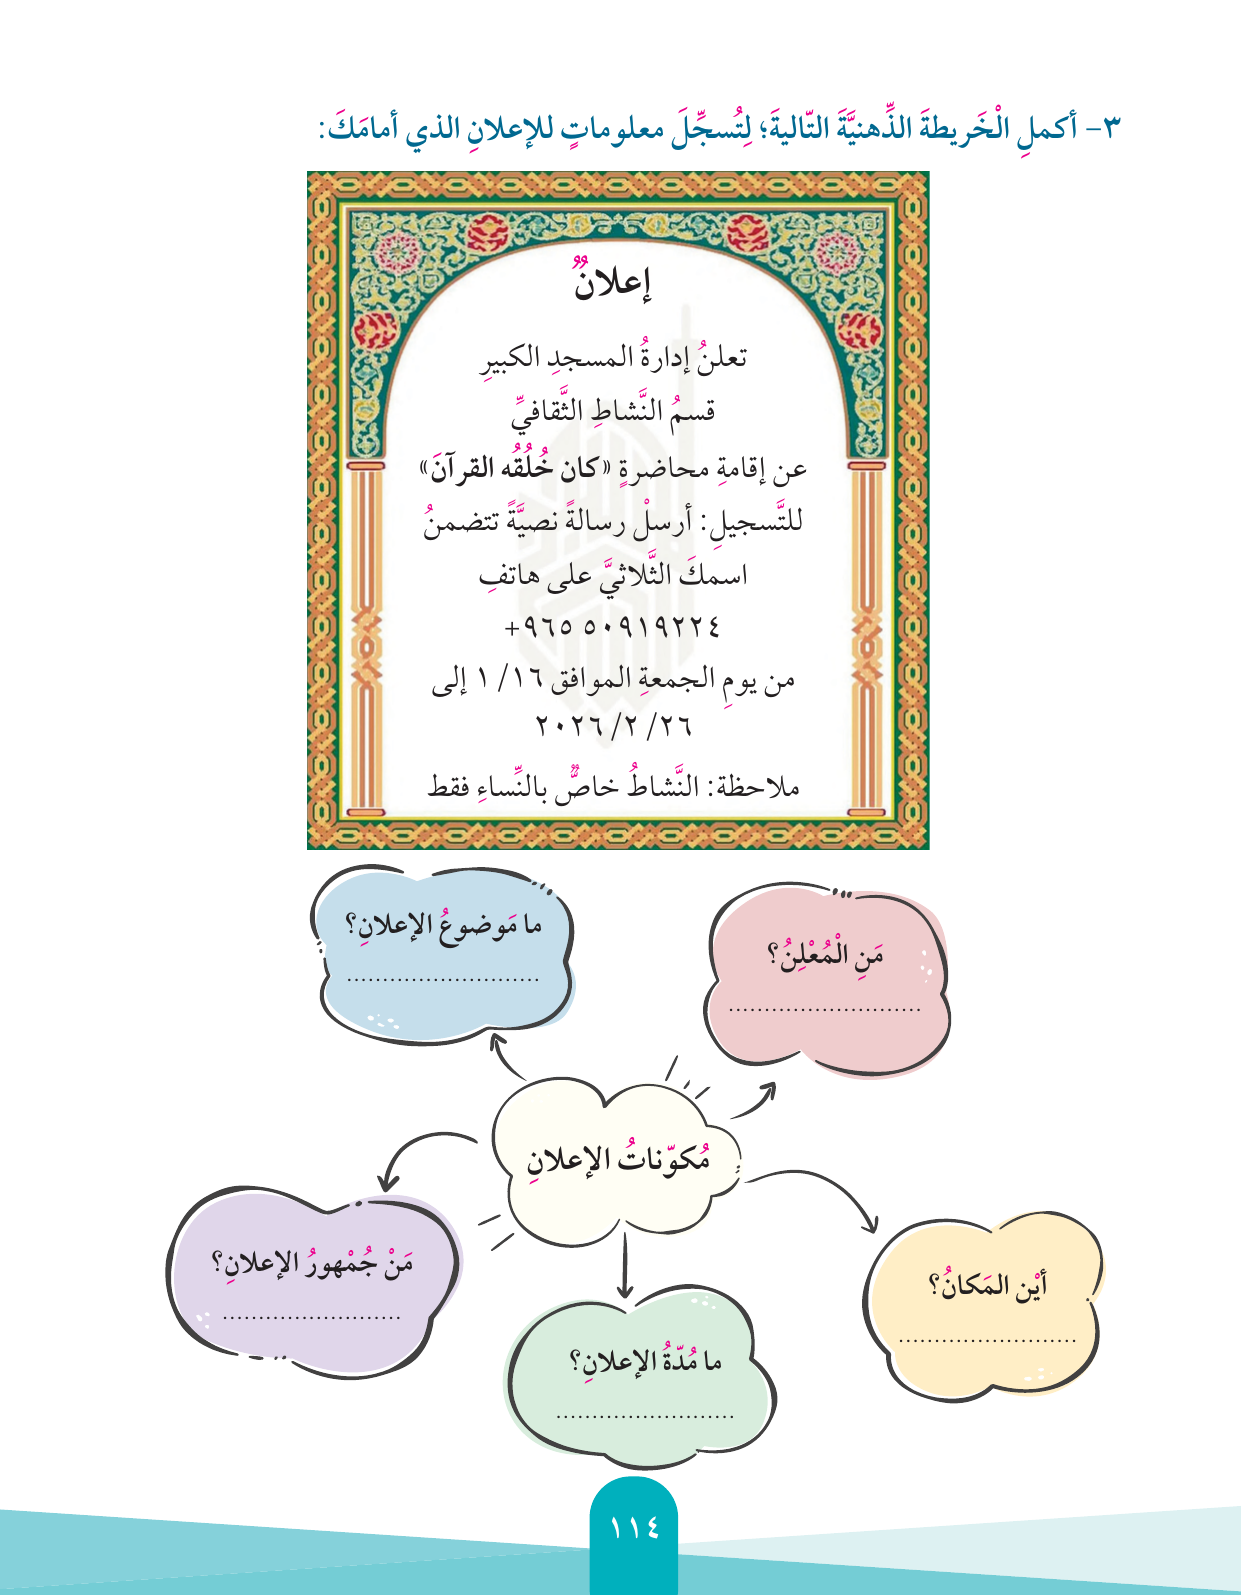 ٣- أكملِ الْخَريطةَ الذِّهنيَّةَ التّاليةَ؛ لِتُسجِّلَ معلوماتٍ للإعلانِ الذي أمامَكَ:
إعلانٌ
تعلنُ إدارةُ المسجدِ الكبيرِ
قسمُ النَّشاطِ الثَّقافيِّ
عن إقامةِ محاضرةٍ «كان خُلُقُه القرآنَ»
للتَّسجيلِ: أرسلْ رسالةً نصيَّةً تتضمنُ
اسمكَ الثَّلاثيَّ على هاتفِ
+٩٦٥ ٥٠٩١٩٢٢٤
من يومِ الجمعةِ الموافق ١٦/ ١ إلى
٢٦/ ٢/ ٢٠٢٦
ملاحظة: النَّشاطُ خاصٌّ بالنِّساءِ فقط
مَنِ الْمُعْلِنُ؟
...........................
ما مَوضوعُ الإعلانِ؟
...........................
مُكوّناتُ الإعلانِ
أيْن المَكانُ؟
.........................
مَنْ جُمْهورُ الإعلانِ؟
.........................
ما مُدّةُ الإعلانِ؟
.........................
١١٤